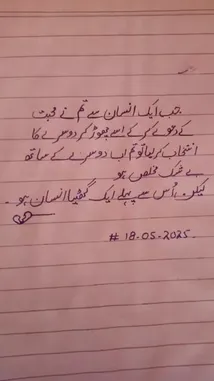 جب ایک انسان سے تم نے محبت
کے دعوے کر کے اسے چھوڑ کر دوسرے کا
انتخاب کر لیا تو تم اس دوسرے کے ساتھ
بے شک مخلص ہو
لیکن اُس سے پہلے ایک گھٹیا انسان ہو۔
# 18.05.2025